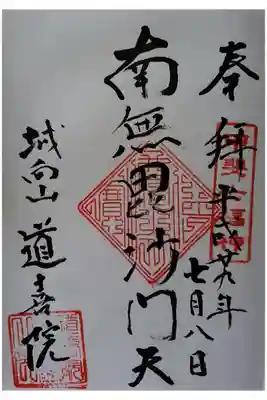 奉拝
平成廿九年
七月八日
南無毘沙門天
城向山
道喜院